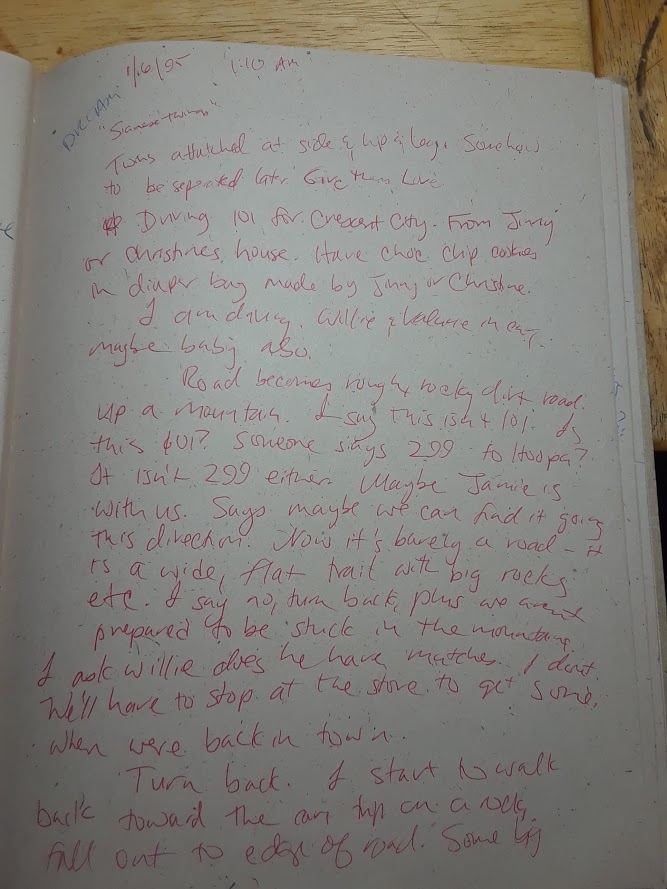 1/6/95 1:10 AM
DREAM
"Siamese twins"
Twins attatched at side & hip & leg. Somehow
to be seperated later. Give them Love
Driving 101 for Crescent City. From Jinny
or Christines house. Have choc chip cookies
in diaper bag made by Jinny or Christine.
I am driving. Willie & in car,
maybe baby also.
Road becomes rough & rocky dirt road.
up a mountain. I say this isn't 101. Is
this 101? Someone says 299 to Hoopa?
It isn't 299 either. Maybe Jamie is
with us. Says maybe we can find it going
this direction. Now it's barely a road - it
is a wide, flat trail with big rocks
etc. I say no, turn back, plus we arent
prepared to be stuck in the mountains.
I ask Willie does he have matches. I dont.
We'll have to stop at the store to get some,
when were back in town.
Turn back. I start to walk
back toward the car, trip on a rock,
fall out to edge of road. Some big